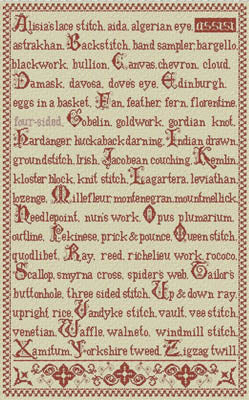 Alisia's lace stitch, aida, algerian eye, assisi
astrakhan. Backstitch, band sampler, bargello,
blackwork, bullion. Canvas, chevron, cloud.
Damask, davosa, dove's eye. Edinburgh,
eggs in a basket. Fan, feather, fern, florentine,
four-sided. Gobelin, goldwork, gordian knot.
Hardanger, huckaback darning. Indian drawn,
groundstitch, Irish. Jacobean couching. Kremlin,
kloster block, knit stitch. Lagartera, leviathan,
lozenge. Millefleur, montenegran, mountmellick.
Needlepoint, nun's work. Opus plumarium,
outline. Pekinese, prick & pounce. Queen stitch,
quodlibet. Ray, reed, richelieu work, rococo.
Scallop, smyrna cross, spider's web. Tailor's
buttonhole, three sided stitch. Up & down ray,
upright rice. Vandyke stitch, vault, vee stitch,
venetian. Waffle, walneto, windmill stitch.
Xamitum. Yorkshire tweed. Zigzag twill.